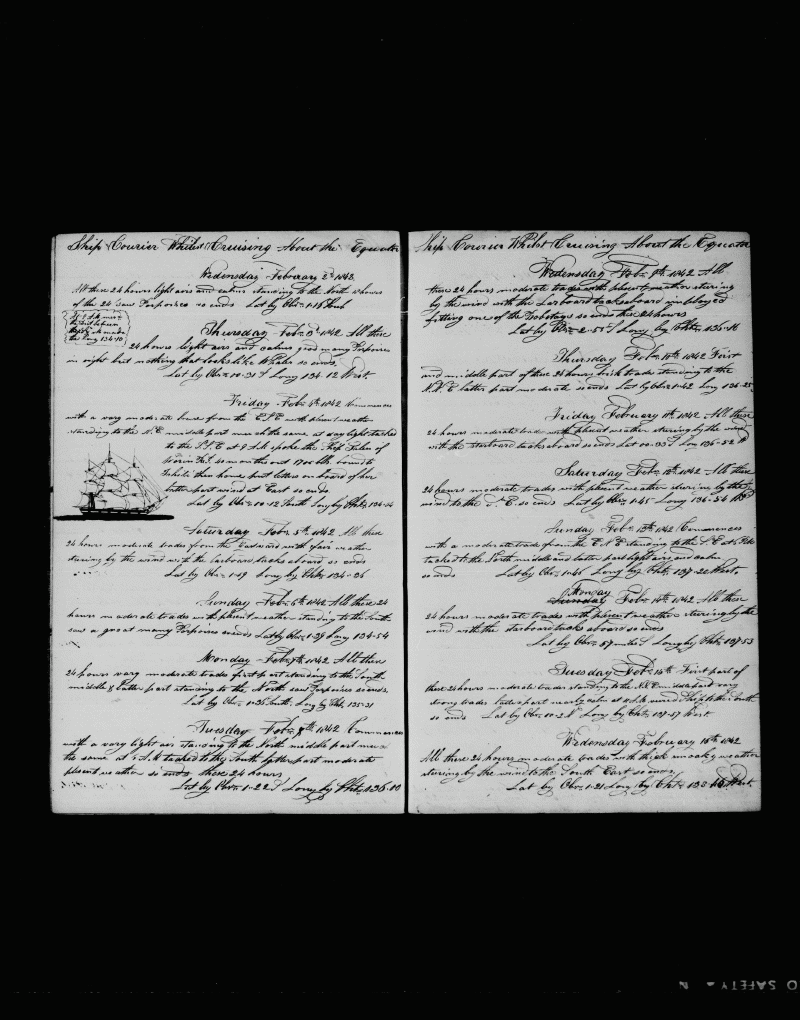 Ship Courier Whilst Cruising About the Equator
Wednesday February 2d 1842
All these 24 hours light airs and calms standing to the North 12 hours
of the 24 saw Porpoises so ends Lat by Obn 1-18 South
Thursday Feb 3d 1842 All these
24 hours light airs and calms good many Porpoises
in sight but nothing that looks like Whales so ends
Lat by Obn 10-31 S Long 134-12 West
Friday Feb 4th 1842 Commences
with a very moderate breeze from the ENE with plesent weather
standing to the N.E. middle part much the same at day light tacked
to the S.S.E at 9 A.M. spoke the Ship
months out 1700 bbls bound to
then home put letters on board of her
latter part wind at East so ends
Lat by Obn 10-12 South Long by Chr 134-14
Saturday Feb 5th 1842 All these
24 hours moderate trades from the Eastward with fair weather
stearing by the wind with the larboard tacks aboard so ends
Lat by Obn 1-19 Long by Chr 134-34
Sunday Feb 6th 1842 All these 24
hours moderate trades with plesent weather standing to the South
saw a great many Porpoises so ends Lat by Obn 1-39 Long 134-54
Monday Feb 7th 1842 All these
24 hours very moderate trades first part standing to the South
middle & latter part standing to the North saw Porpoises so ends
Lat by Obn 1-35 South Long by Chr 135-31
Tuesday Feb 8th 1842 Commences
with a very light air standing to the North middle part much
the same at 5 A.M. tacked to the South latter part moderate
plesent weather so ends these 24 hours
Lat by Obn 1-22 S Long by Chr 136-10
Ship Courier Whilst Cruising About the Equator
Wednesday Feb 9th 1842 All
these 24 hours moderate trades with plesent weather stearing
by the wind with the Larboard tacks aboard imployed
fitting one of the Bobstays so ends these 24 hours
Lat by Obn 2-51 S Long by Chr 136-16
Thursday Feb 10th 1842 First
and middle part of these 24 hours brisk trades standing to the
N.N.E latter part moderate so ends Lat by Obn 1-42 Long 136-25
Friday February 11th 1842 All these
24 hours moderate trades with plesent weather stearing by the wind
with the starboard tacks aboard so ends Lat 00-33 S Lon 136-52 W
Saturday Feb 12th 1842 All these
24 hours moderate trades with plesent weather stearing by the
wind to the S.E. so ends Lat by Obn 1-45 Long 136-54 West
Sunday Feb 13th 1842 Commences
with a moderate trade from the E.N.E standing to the S.E at 4 P.M.
tacked to the North middle and latter part light airs and calm
so ends Lat by Obn 1-41 Long by Chr 137-22 West
Monday
Sunday Feb 14th 1842 All these
24 hours moderate trades with plesent weather stearing by the
wind with the starboard tacks aboard so ends
Lat by Obn 57 miles S Long by Chr 137-53
Tuesday Feb 15th First part of
these 24 hours moderate trades standing to the N.N.E middle part very
strong trades latter part nearly calm at 11 A.M. wore Ship to the South
so ends Lat by Obn 10-2 N Long by Chr 137-17 West
Wednesday February 16th 1842
All these 24 hours moderate trades with thick smokey weather
stearing by the wind to the South East so ends
Lat by Obn 1-21 Long by Chr 138-10 West
O SAFETY